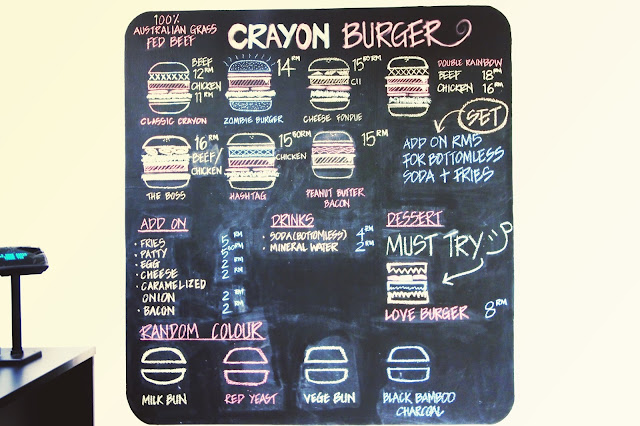 100%
AUSTRALIAN GRASS
FED BEEF
CRAYON BURGER
BEEF
12RM
CHICKEN
11RM
CLASSIC CRAYON
14RM
ZOMBIE BURGER
15.50RM
CHEESE FONDUE
DOUBLE RAINBOW
BEEF 18RM
CHICKEN 16RM
SET
ADD ON RM5
FOR BOTTOMLESS
SODA + FRIES
16RM
BEEF/
CHICKEN
THE BOSS
15.50RM
CHICKEN
HASHTAG
15RM
PEANUT BUTTER
BACON
ADD ON
• FRIES 5RM
• PATTY
• EGG 2RM
• CHEESE 2RM
• CARAMELIZED
ONION 2RM
• BACON 2RM
DRINKS
• SODA (BOTTOMLESS) 4RM
• MINERAL WATER 2RM
DESSERT
MUST TRY
LOVE BURGER 8RM
RANDOM COLOUR
MILK BUN
RED YEAST
VEGE BUN
BLACK BAMBOO
CHARCOAL